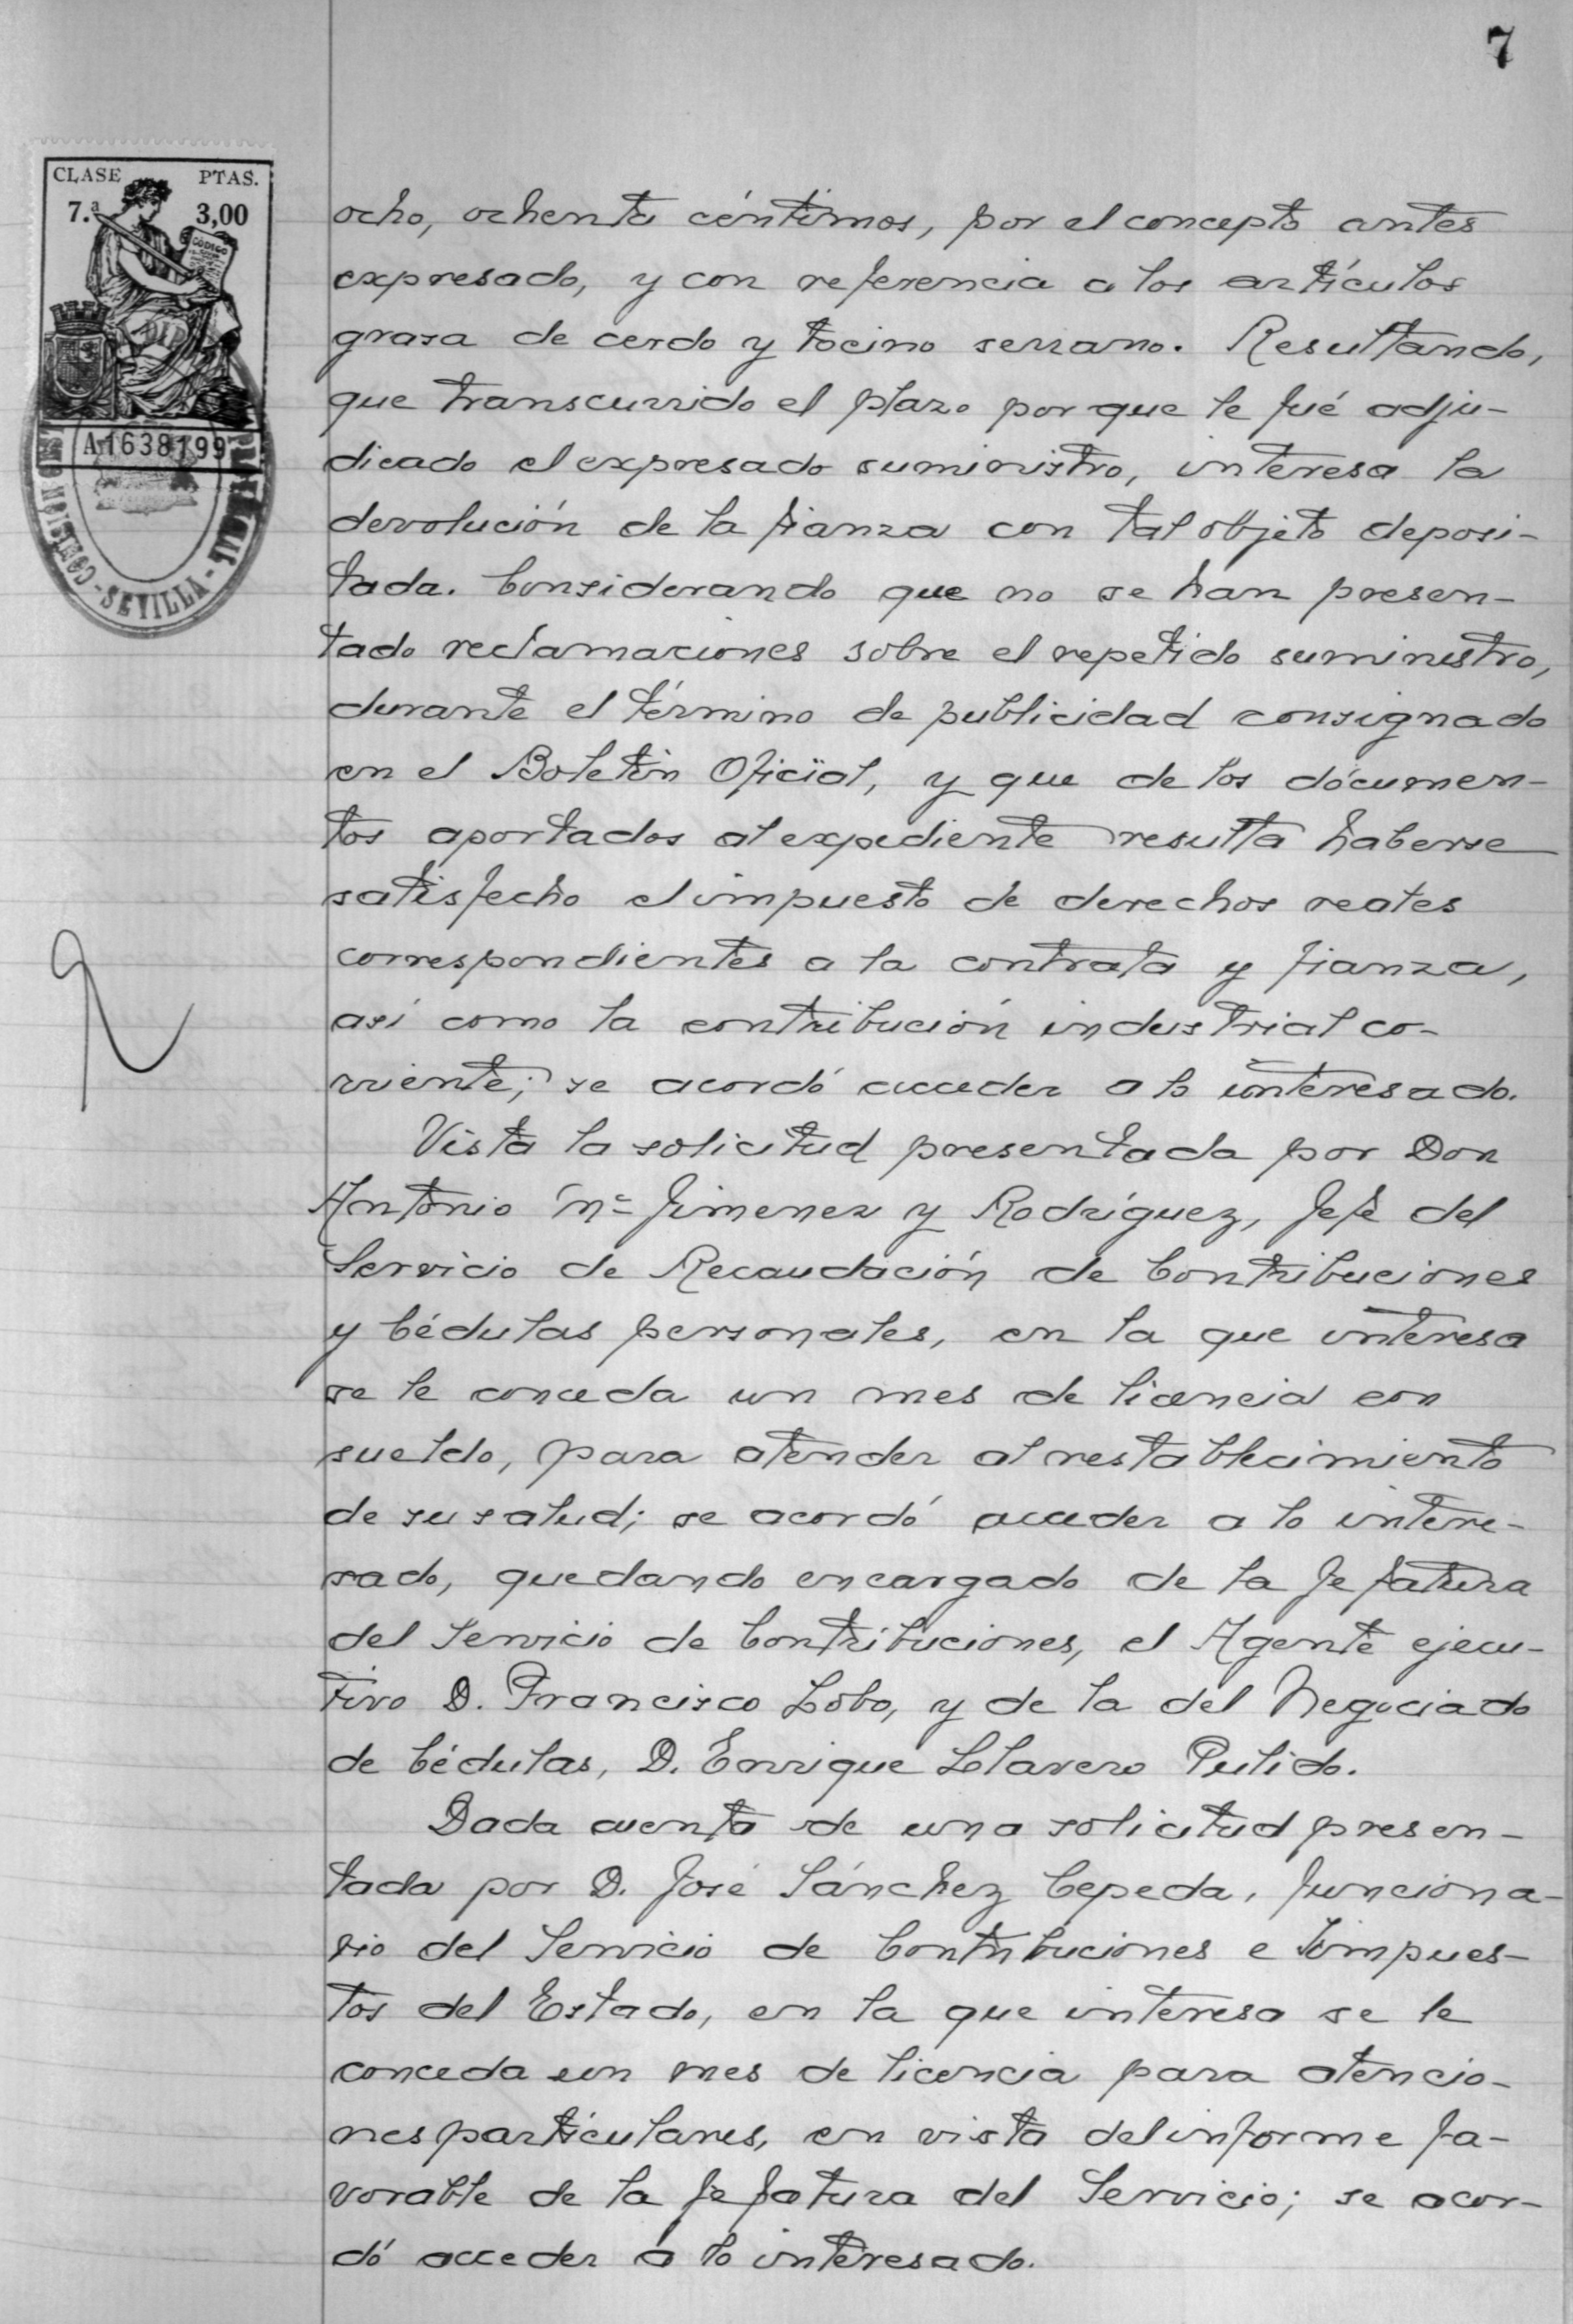 7
CLASE PTAS.
7.ª 3,00
CÓDIGO
A1638199
COMISION
SEVILLA
ocho, ochenta céntimos, por el concepto antes
expresado, y con referencia a los artículos
grasa de cerdo y tocino serrano. Resultando,
que transcurrido el plazo porque le fué adju-
dicado el expresado suministro, interesa la
devolución de la fianza con tal objeto deposi-
tada. Considerando que no se han presen-
tado reclamaciones sobre el repetido suministro,
durante el término de publicidad consignado
en el Boletín Oficial, y que de los documen-
tos aportados al expediente resulta haberse
satisfecho el impuesto de derechos reales
correspondientes a la contrata y fianza,
así como la contribución industrial co-
rriente; se acordó acceder a lo interesado.
Vista la solicitud presentada por Don
Antonio Mª Jimenez y Rodríguez, Jefe del
Servicio de Recaudación de Contribuciones
y Cédulas personales, en la que interesa
se le conceda un mes de licencia con
sueldo, para atender al restablecimiento
de su salud; se acordó acceder a lo intere-
sado, quedando encargado de la Jefatura
del Servicio de Contribuciones, el Agente ejecu-
tivo D. Francisco Lobo, y de la del Negociado
de Cédulas, D. Enrique Llavero Pulido.
Dada cuenta de una solicitud presen-
tada por D. José Sánchez Cepeda, funciona-
rio del Servicio de Contribuciones e Impues-
tos del Estado, en la que interesa se le
conceda un mes de licencia para atencio-
nes particulares, en vista del informe fa-
vorable de la Jefatura del Servicio; se acor-
dó acceder a lo interesado.